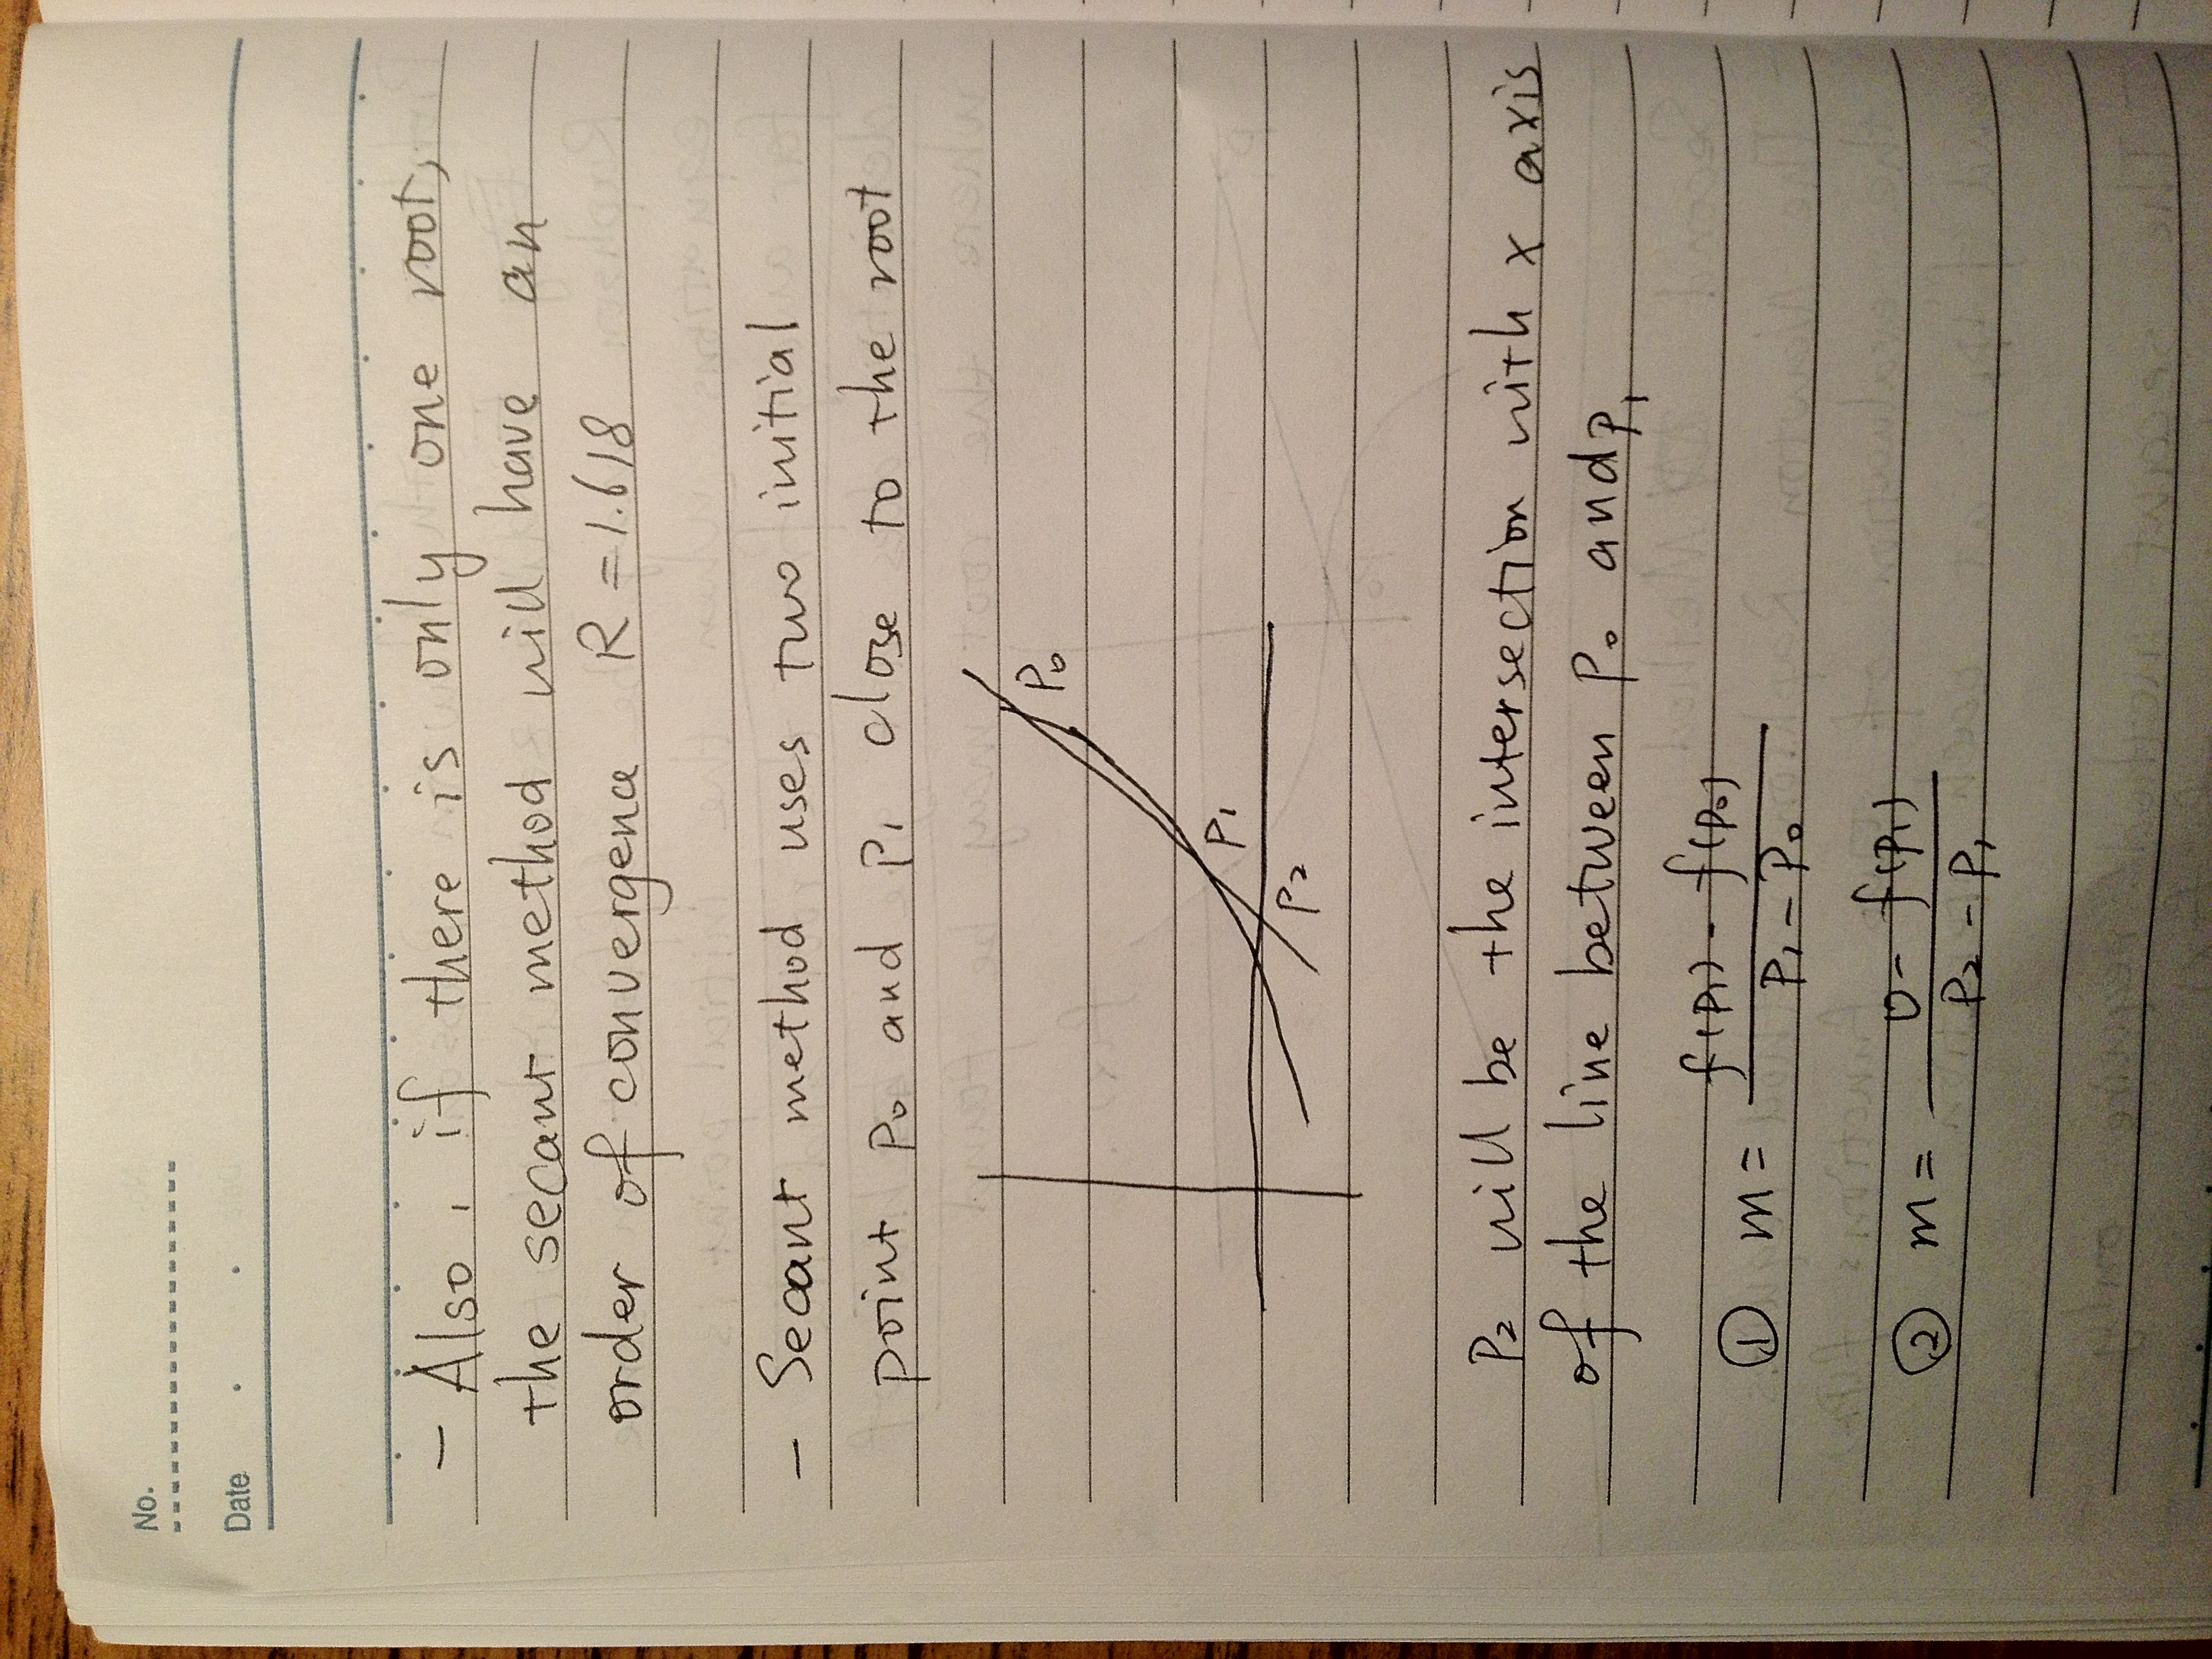 No.
Date
- Also, if there is only one root,
the secant method will have an
order of convergence R = 1.618
- Secant method uses two initial
point P₀ and P₁ close to the root
P₀
P₁
P₂
P₂ will be the intersection with x axis
of the line between P₀ and P₁
① m = f(P₁) - f(P₀) / P₁ - P₀
② m = 0 - f(P₁) / P₂ - P₁